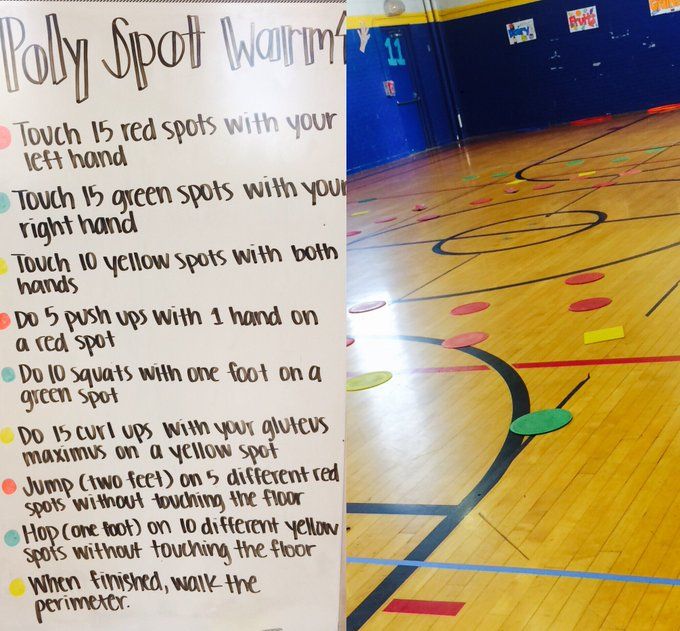 Poly Spot Warm
Touch 15 red spots with your
left hand
Touch 15 green spots with your
right hand
Touch 10 yellow spots with both
hands
Do 5 push ups with 1 hand on
a red spot
Do 10 squats with one foot on a
green spot
Do 15 curl ups with your gluteus
maximus on a yellow spot
Jump (two feet) on 5 different red
spots without touching the floor
Hop (one foot) on 10 different yellow
spots without touching the floor
When finished, walk the
perimeter.
11
Dairy
Fruits